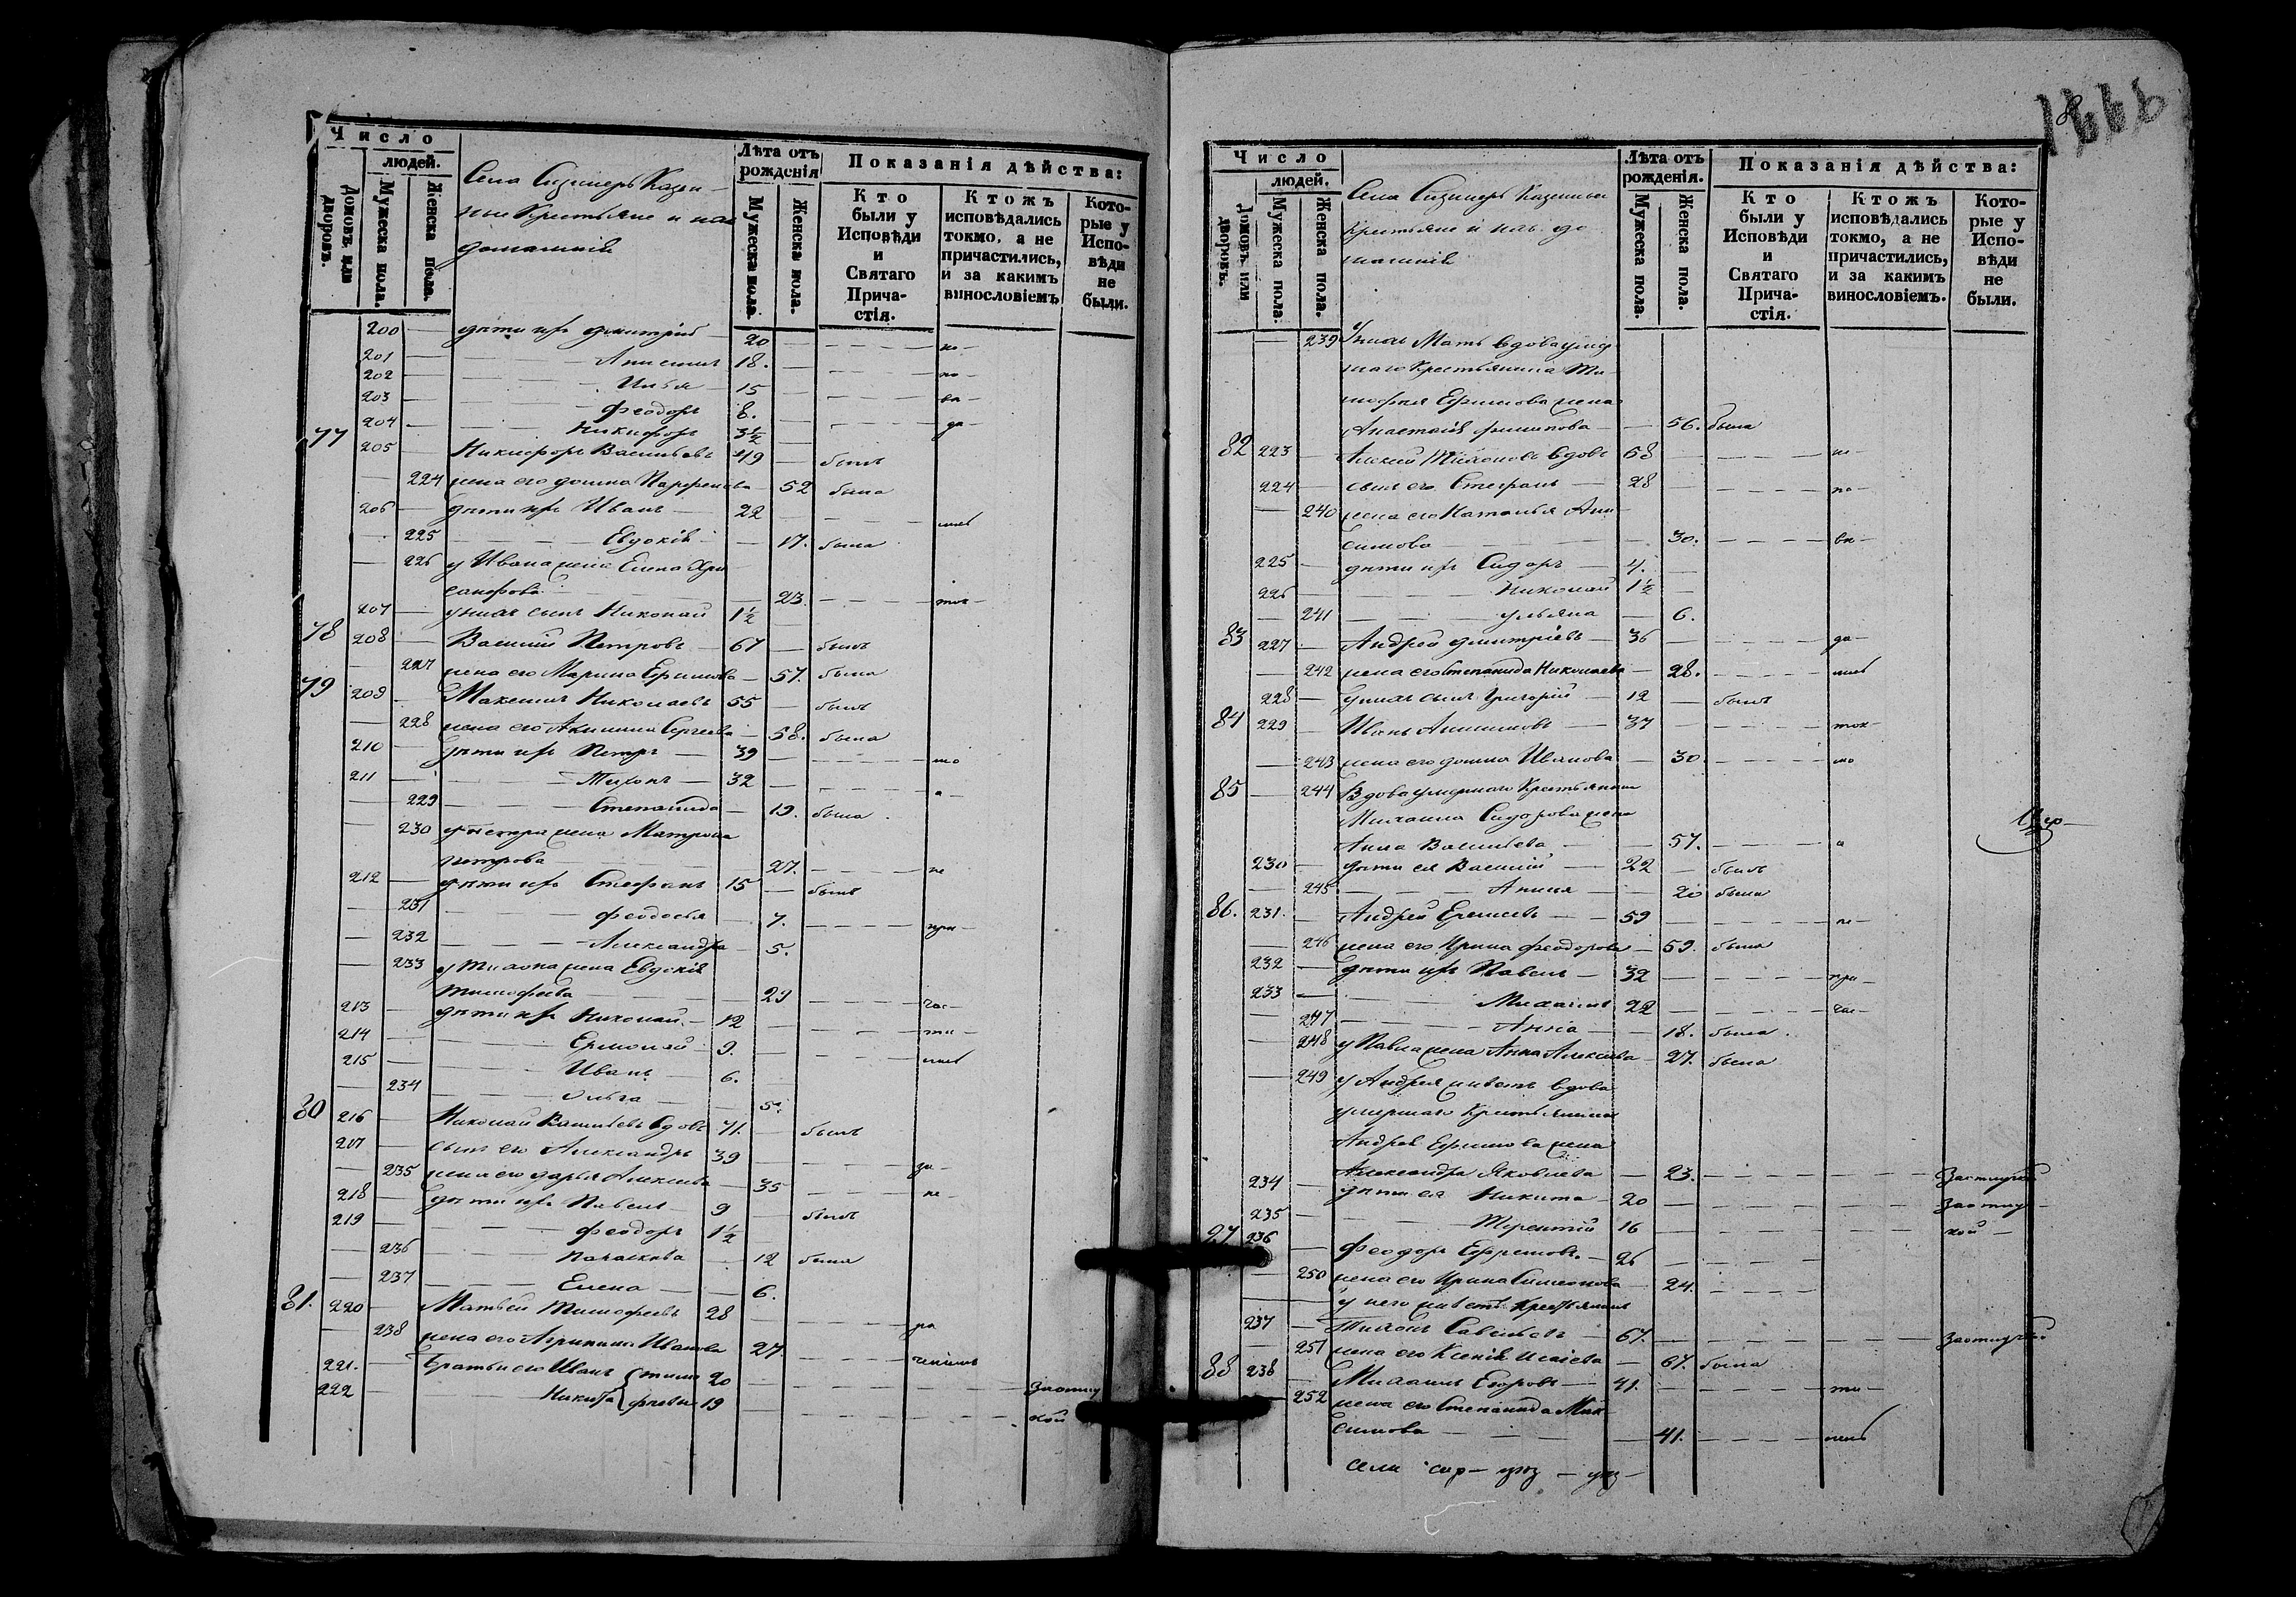 Число
людей.
Домовъ или дворовъ.
Мужеска пола.
Женска пола.
Села Сизнеръ Казен-
ные Крестьяне и ихъ
домашніе
Лѣта отъ рожденія
Мужеска пола.
Женска пола.
Показанія дѣйства:
Кто были у Исповѣди и Святаго Прича-стія.
Ктожъ исповѣдались токмо, а не причастились, и за какимъ винословіемъ
Кото-рые у Испо-вѣди не были.
200 — дѣти ихъ Димитрій — 20 — не-
201 — Анисимъ 18. — по-
202 — Илья 15 —
203 — Феодоръ 8.
204 — Никифоръ 3½ — да-
77 205 — Никифоръ Васильевъ 49 — былъ
— 224 жена его Домна Парфенова — 52 была
206 — дѣти ихъ Иванъ — 22
— 225 Евдокія — 17. была
— 226 у Ивана жена Елена Хри-
санфова — 23. — ток-
207 — у нихъ сынъ Николай 1½
78 208 — Василій Петровъ — 67 — былъ
— 227 жена его Марина Ефимова — 57. была
79 209 — Максимъ Николаевъ 55 — былъ
— 228 жена его Акилина Сергеева — 58. была
210 — дѣти ихъ Петръ — 39 — мо
211 — Тихонъ — 32 — а-
— 229 Степанида — 19. была
— 230 у Петра жена Матрона
Петрова — 27. — не
212 — дѣти ихъ Стефанъ 15 — былъ
— 231 Феодосья — 7. — при-
— 232 Александра — 5.
— 233 у Тихона жена Евдокія
Тимофеева — 29 — час-
213 — дѣти ихъ Николай — 12 — ти-
214 — Ермолай 9. — лись
215 — Иванъ 6.
— 234 Ольга — 5.
80 216 — Николай Васильевъ вдовъ 71. — былъ
217 — сынъ его Александръ 39 — за-
— 235 жена его Дарья Алексеева — 35 — не-
218 — дѣти ихъ Павелъ — 9 — былъ
219 — Феодоръ 1½
— 236 Параскева — 12 была
— 237 Елена — 6.
81. 220 — Матвей Тимофеевъ 28
— 238 жена его Агрипина Иванова 27.
221. — Братья его Иванъ тимо 20 — Заотлу
222 — Никита феевы 19 — кой
Число
людей.
Домовъ или дворовъ.
Мужеска пола.
Женска пола.
Села Сизнеръ Казенные
Крестьяне и ихъ до
машніе
Лѣта отъ рожденія.
Мужеска пола.
Женска пола.
Показанія дѣйства:
Кто были у Исповѣди и Святаго Прича-стія.
Ктожъ исповѣдались токмо, а не причастились, и за какимъ винословіемъ.
Кото-рые у Испо-вѣди не были.
— 239 У нихъ Мать вдова умер
шаго Крестьянина Ти-
мофея Ефимова жена
Анастасія Филипова — 56. была
82 223 — Алексей Тихоновъ вдовъ 68 — не-
224 — сынъ его Стефанъ — 28 — по-
— 240 жена его Наталья Ани-
симова — 30.
225 — дѣти ихъ Сидоръ — 4.
226 Николай 1½
— 241 Ульяна — 6.
83 227 — Андрей Димитріевъ — 36 — да-
— 242 жена его Степанида Николаева — 28. — лись
228 — У нихъ сынъ Григорій — 12 — былъ
84 229 — Иванъ Анисимовъ — 37 — ток-
— 243 жена его Домна Иванова — 30. — мо
85 — 244 Вдова умершаго Крестьянина
Михаила Сидорова жена
Анна Васильева — 57. — а
230 — дѣти ея Василій — 22 — былъ
— 245 Анисья — 20 была
86. 231. — Андрей Еремеевъ — 59 — не-
— 246 жена его Ирина Феодорова — 59. была
232 — дѣти ихъ Павелъ — 32 — при-
233 — Михаилъ 22 — час-
— 247 Анна — 18. была
— 248 у Павла жена Анна Алексеева — 27. была
— 249 у Андрея живетъ вдова
умершаго Крестьянина
Андрея Ефимова жена
Александра Яковлева — 23. — Заотлуч
234 — дѣти ея Никита — 20 — Заотлу-
235 — Терентій 16 — кой-
87 236 — Феодоръ Ефремовъ — 26
— 250 жена его Ирина Симеонова — 24.
у него живетъ Крестьянинъ
237 — Тихонъ Савельевъ — 67. — Заотлуч
— 251 жена его Ксенія Исаіева — 67. была
88 238 — Михаилъ Егоровъ — 41. — ти-
— 252 жена его Степанида Мак-
симова — 41. — лись